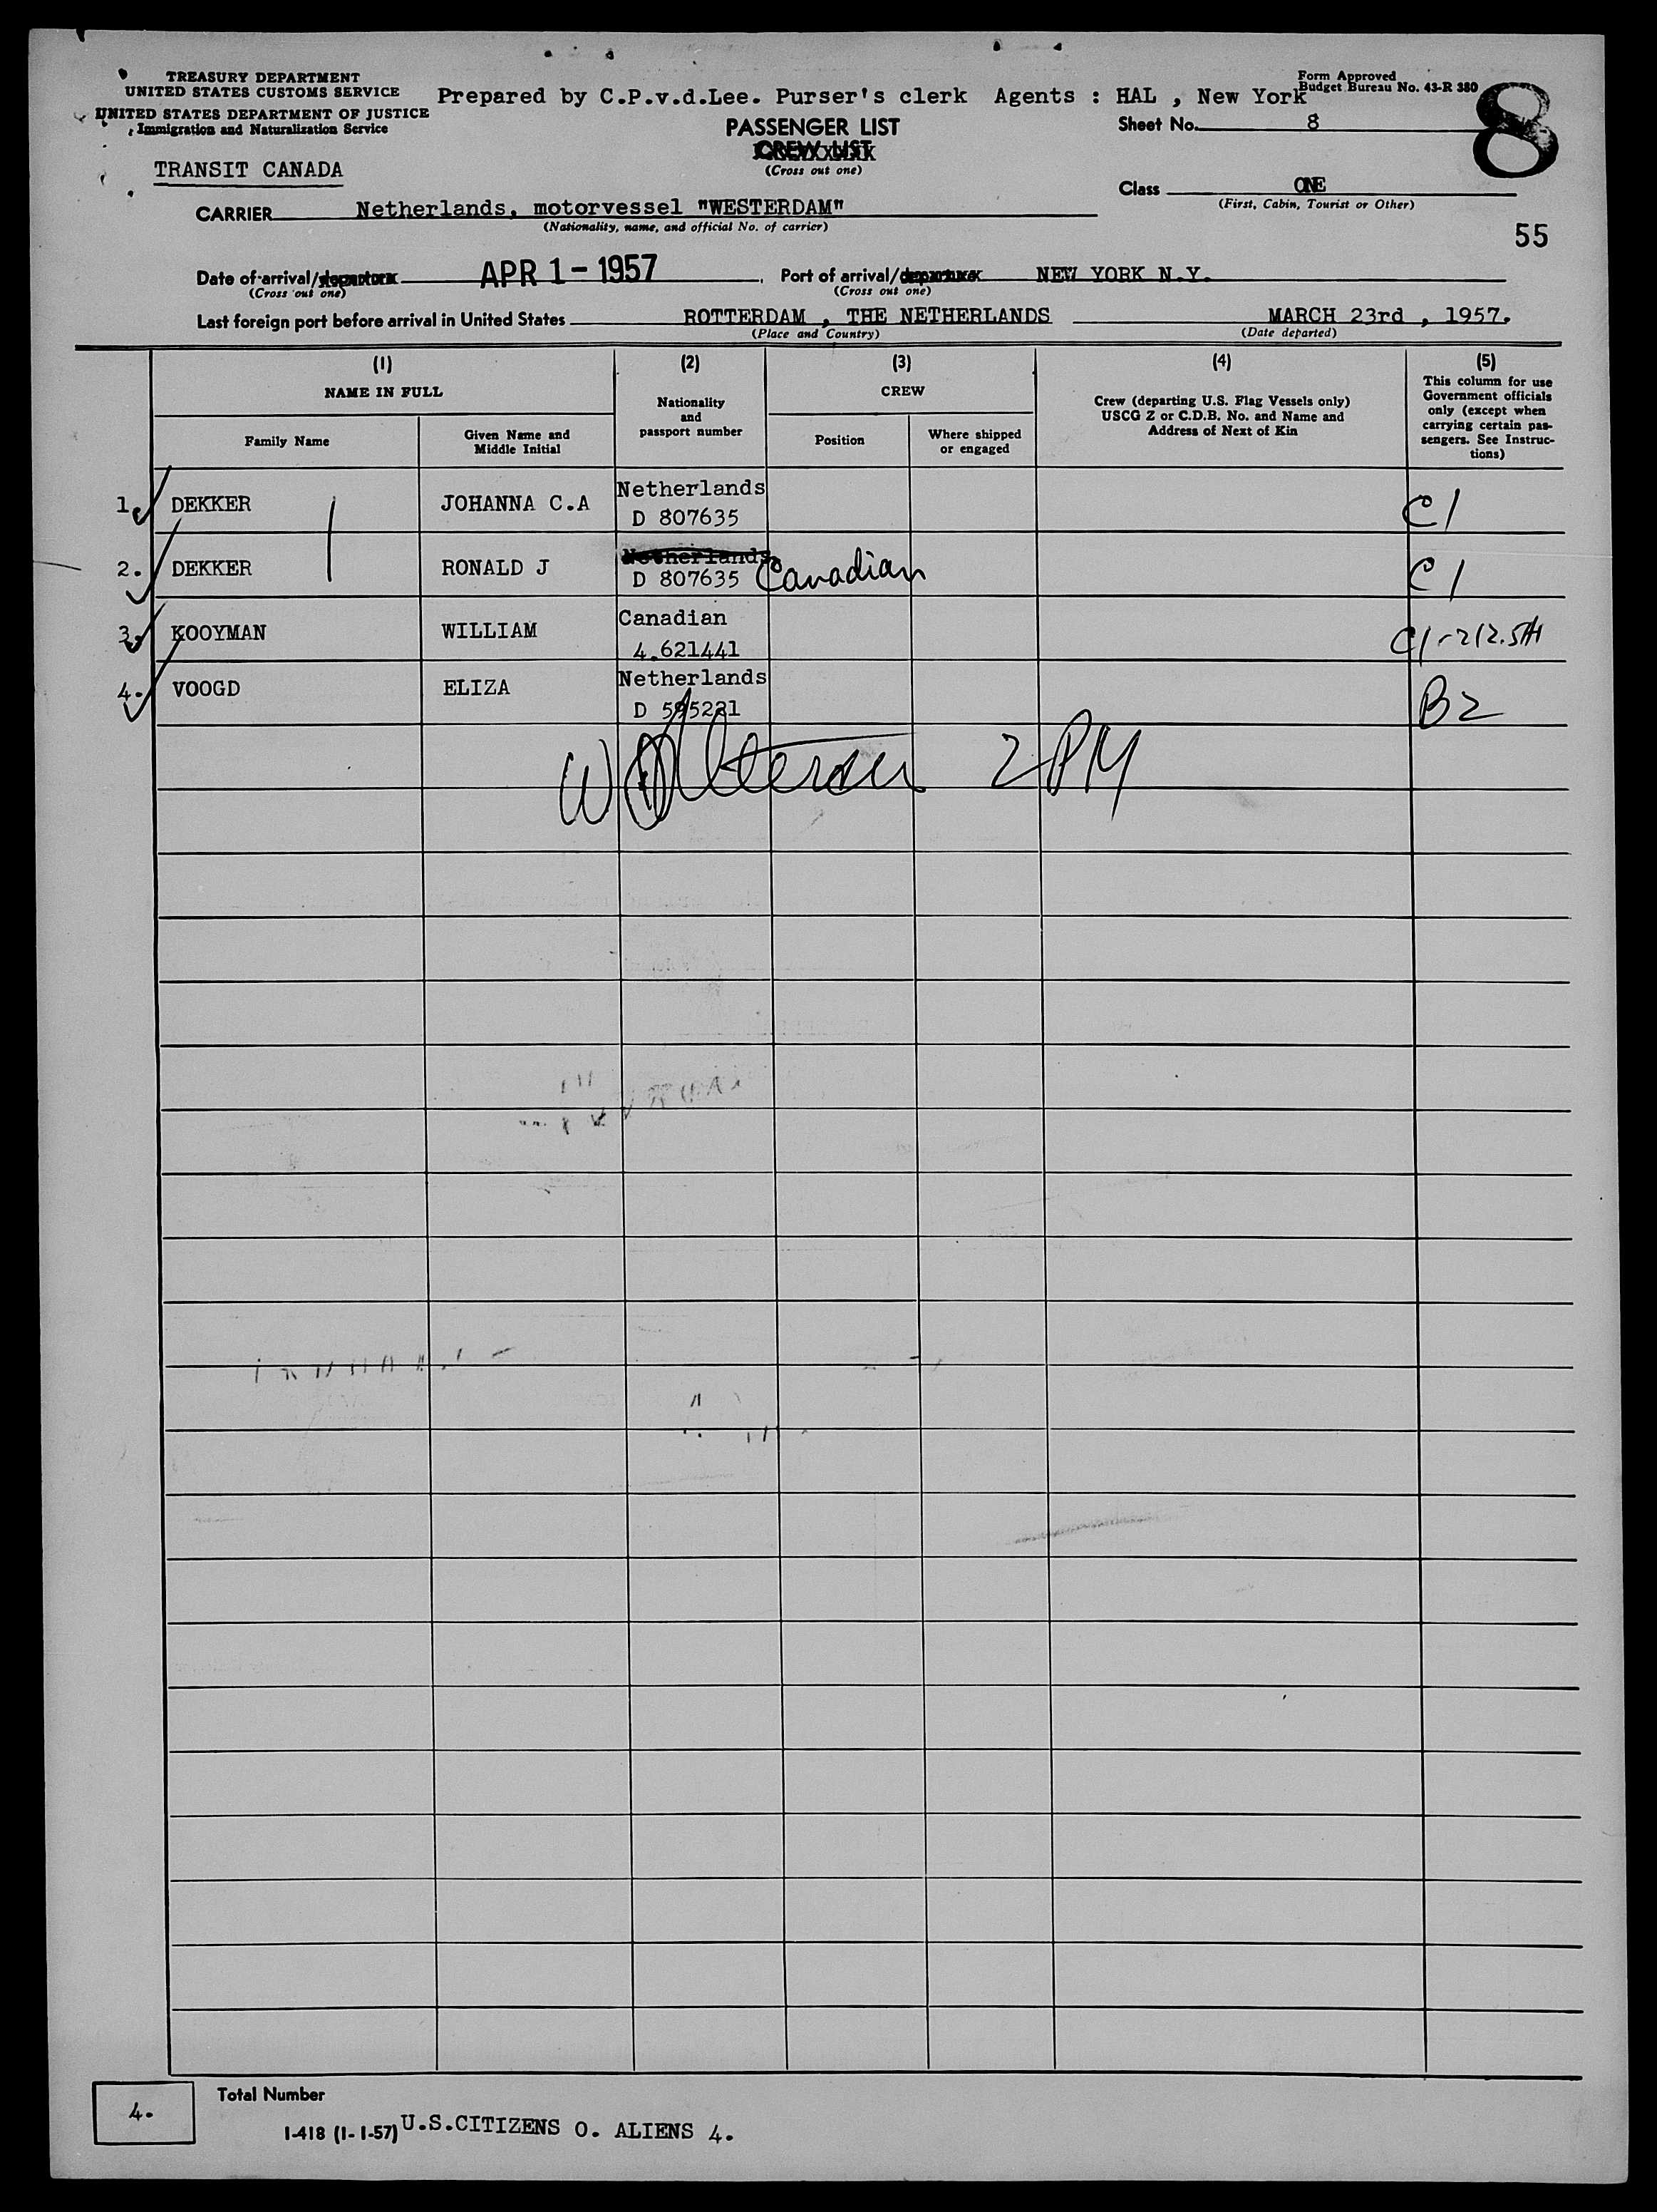 TREASURY DEPARTMENT
UNITED STATES CUSTOMS SERVICE
UNITED STATES DEPARTMENT OF JUSTICE
Immigration and Naturalization Service
Prepared by C.P.v.d.Lee. Purser's clerk Agents : HAL , New York
Form Approved
Budget Bureau No. 43-R 380
8
PASSENGER LIST
CREW LIST
(Cross out one)
Sheet No. 8
TRANSIT CANADA
Class ONE
(First, Cabin, Tourist or Other)
CARRIER Netherlands, motorvessel "WESTERDAM"
(Nationality, name, and official No. of carrier)
55
Date of arrival/departure APR 1 - 1957, Port of arrival/departure NEW YORK N.Y.
(Cross out one) (Cross out one)
Last foreign port before arrival in United States ROTTERDAM , THE NETHERLANDS MARCH 23rd , 1957.
(Place and Country) (Date departed)
(1) (2) (3) (4) (5)
NAME IN FULL
Family Name
Given Name and
Middle Initial
Nationality
and
passport number
CREW
Position
Where shipped
or engaged
Crew (departing U.S. Flag Vessels only)
USCG Z or C.D.B. No. and Name and
Address of Next of Kin
This column for use
Government officials
only (except when
carrying certain pas-
sengers. See Instruc-
tions)
1. DEKKER JOHANNA C.A Netherlands C1
D 807635
2. DEKKER RONALD J Netherlands C1
D 807635 Canadian
3. KOOYMAN WILLIAM Canadian
4.621441
4. VOOGD ELIZA Netherlands B2
2 PM
4.
Total Number
I-418 (1-1-57) U.S.CITIZENS 0. ALIENS 4.